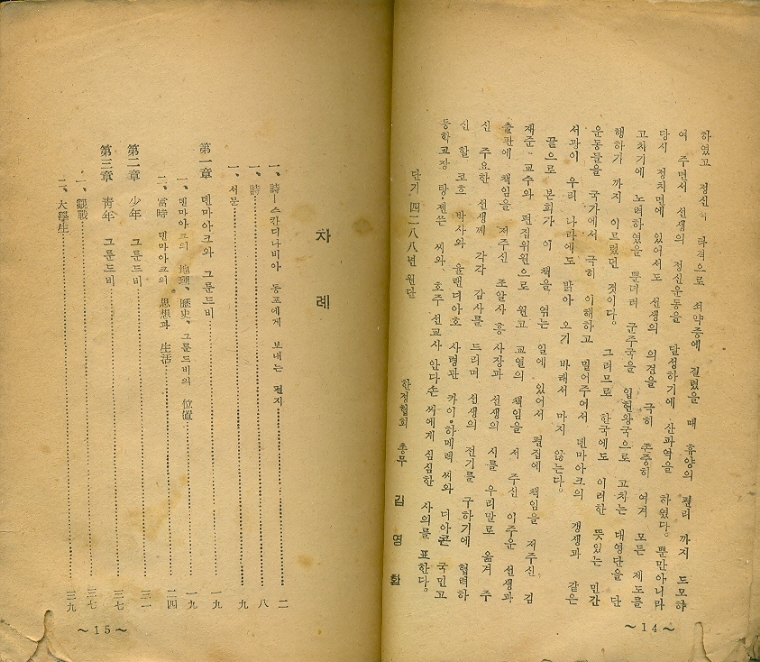 하였고 정신의 타격으로 쇠약중에 걸렸을 때 휴양의 편리 까지 도모하
여 주면서 선생의 정신운동을 달성하기에 산파역을 하였다. 뿐만아니라
당시 정치면에 있어서도 선생의 의견을 극히 존중히 여겨 모든 제도를
고치기에 노력하였을 뿐더러 군주국을 입헌왕국으로 고치는 대영단을 단
행하기 까지 이르렀던 것이다. 그러므로 한국에도 이러한 뜻있는 민간
운동들을 국가에서 극히 이해하고 밀어주어서 덴마아크의 갱생과 같은
서광이 우리 나라에도 밝아 오기 바래서 마지 않는다.
끝으로 본회가 이 책을 엮는 일에 있어서 편집에 책임을 져주신 김
재준 교수와 편집위원으로 원고 교열의 책임을 져 주신 이주운 선생과
출판에 책임을 져주신 조알사 홍사장과 선생의 시를 우리말로 옮겨 주
신 주요한 선생께 각각 감사를 드리며 선생의 전기를 구하기에 협력하
신 할 코흐 박사와 율랜더아호 사령관 카이•하메릭 씨와 더아콘 국민고
등학교장 탕•젠쓴 씨와 호주 선교사 안다손 씨에게 심심한 사의를 표한다.
단기 四二八八년 원단
한정협회 총무 김영환
~14~
차례
一、詩—스칸디나비아 동포에게 보내는 편지 二
一、詩 八
一、서문 九
第一章 덴마아크와 그룬드비 一九
一、덴마아크의 地理、歷史、그룬드비의 位置 一九
二、當時 덴마아크의 思想과 生活 二四
第二章 少年 그룬드비 三一
第三章 靑年 그룬드비 三七
一、觀戰 三七
二、大學生 三九
~15~